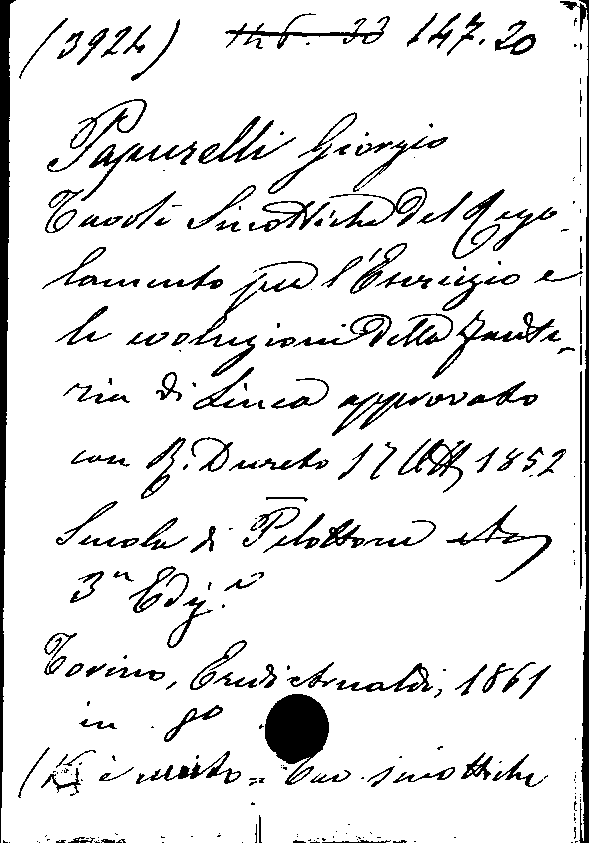 (3924) 146. 33 147.20
Papurelli Giorgio
Tavole Sinottiche del Rego-
lamento per l'Esercizio e
le evoluzioni della fante-
ria di Linea approvato
con R. Decreto 17 Ott 1852
Scuola di Pelottone etc
3ª Ediz.e
Torino, Eredi Arnaldi, 1861
in 8º
è unito = Tav sinottiche